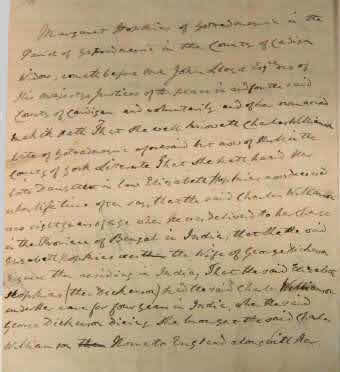 Margaret Hopkins of Gotrodmeurie in the
Parish of in the County of Cardigan
Widow, cometh before me John Lloyd Esqr. one of
His majesty's Justices of the peace in and for the said
County of Cardigan and voluntarily and of her own accord
Maketh Oath That she well knoweth Charles Williamson
late of aforesaid but now of in the
County of York That she hath heard Her
late Daughter in law Elizabeth Hopkins now deceased
when life time often say, that the said Charles Williamson
was eight years of age when he was delivered to her charge
in the Province of Bengal in India, that she the said
Elizabeth Hopkins was then the Wife of George Dickerson
Esquire then residing in India, That the said Elizabeth
Hopkins (then Dickerson) had the said Charles Williamson
under her care for four years in India, & the said
George Dickerson dieing she brought the said Charles
Williamson then Home to England along with Her